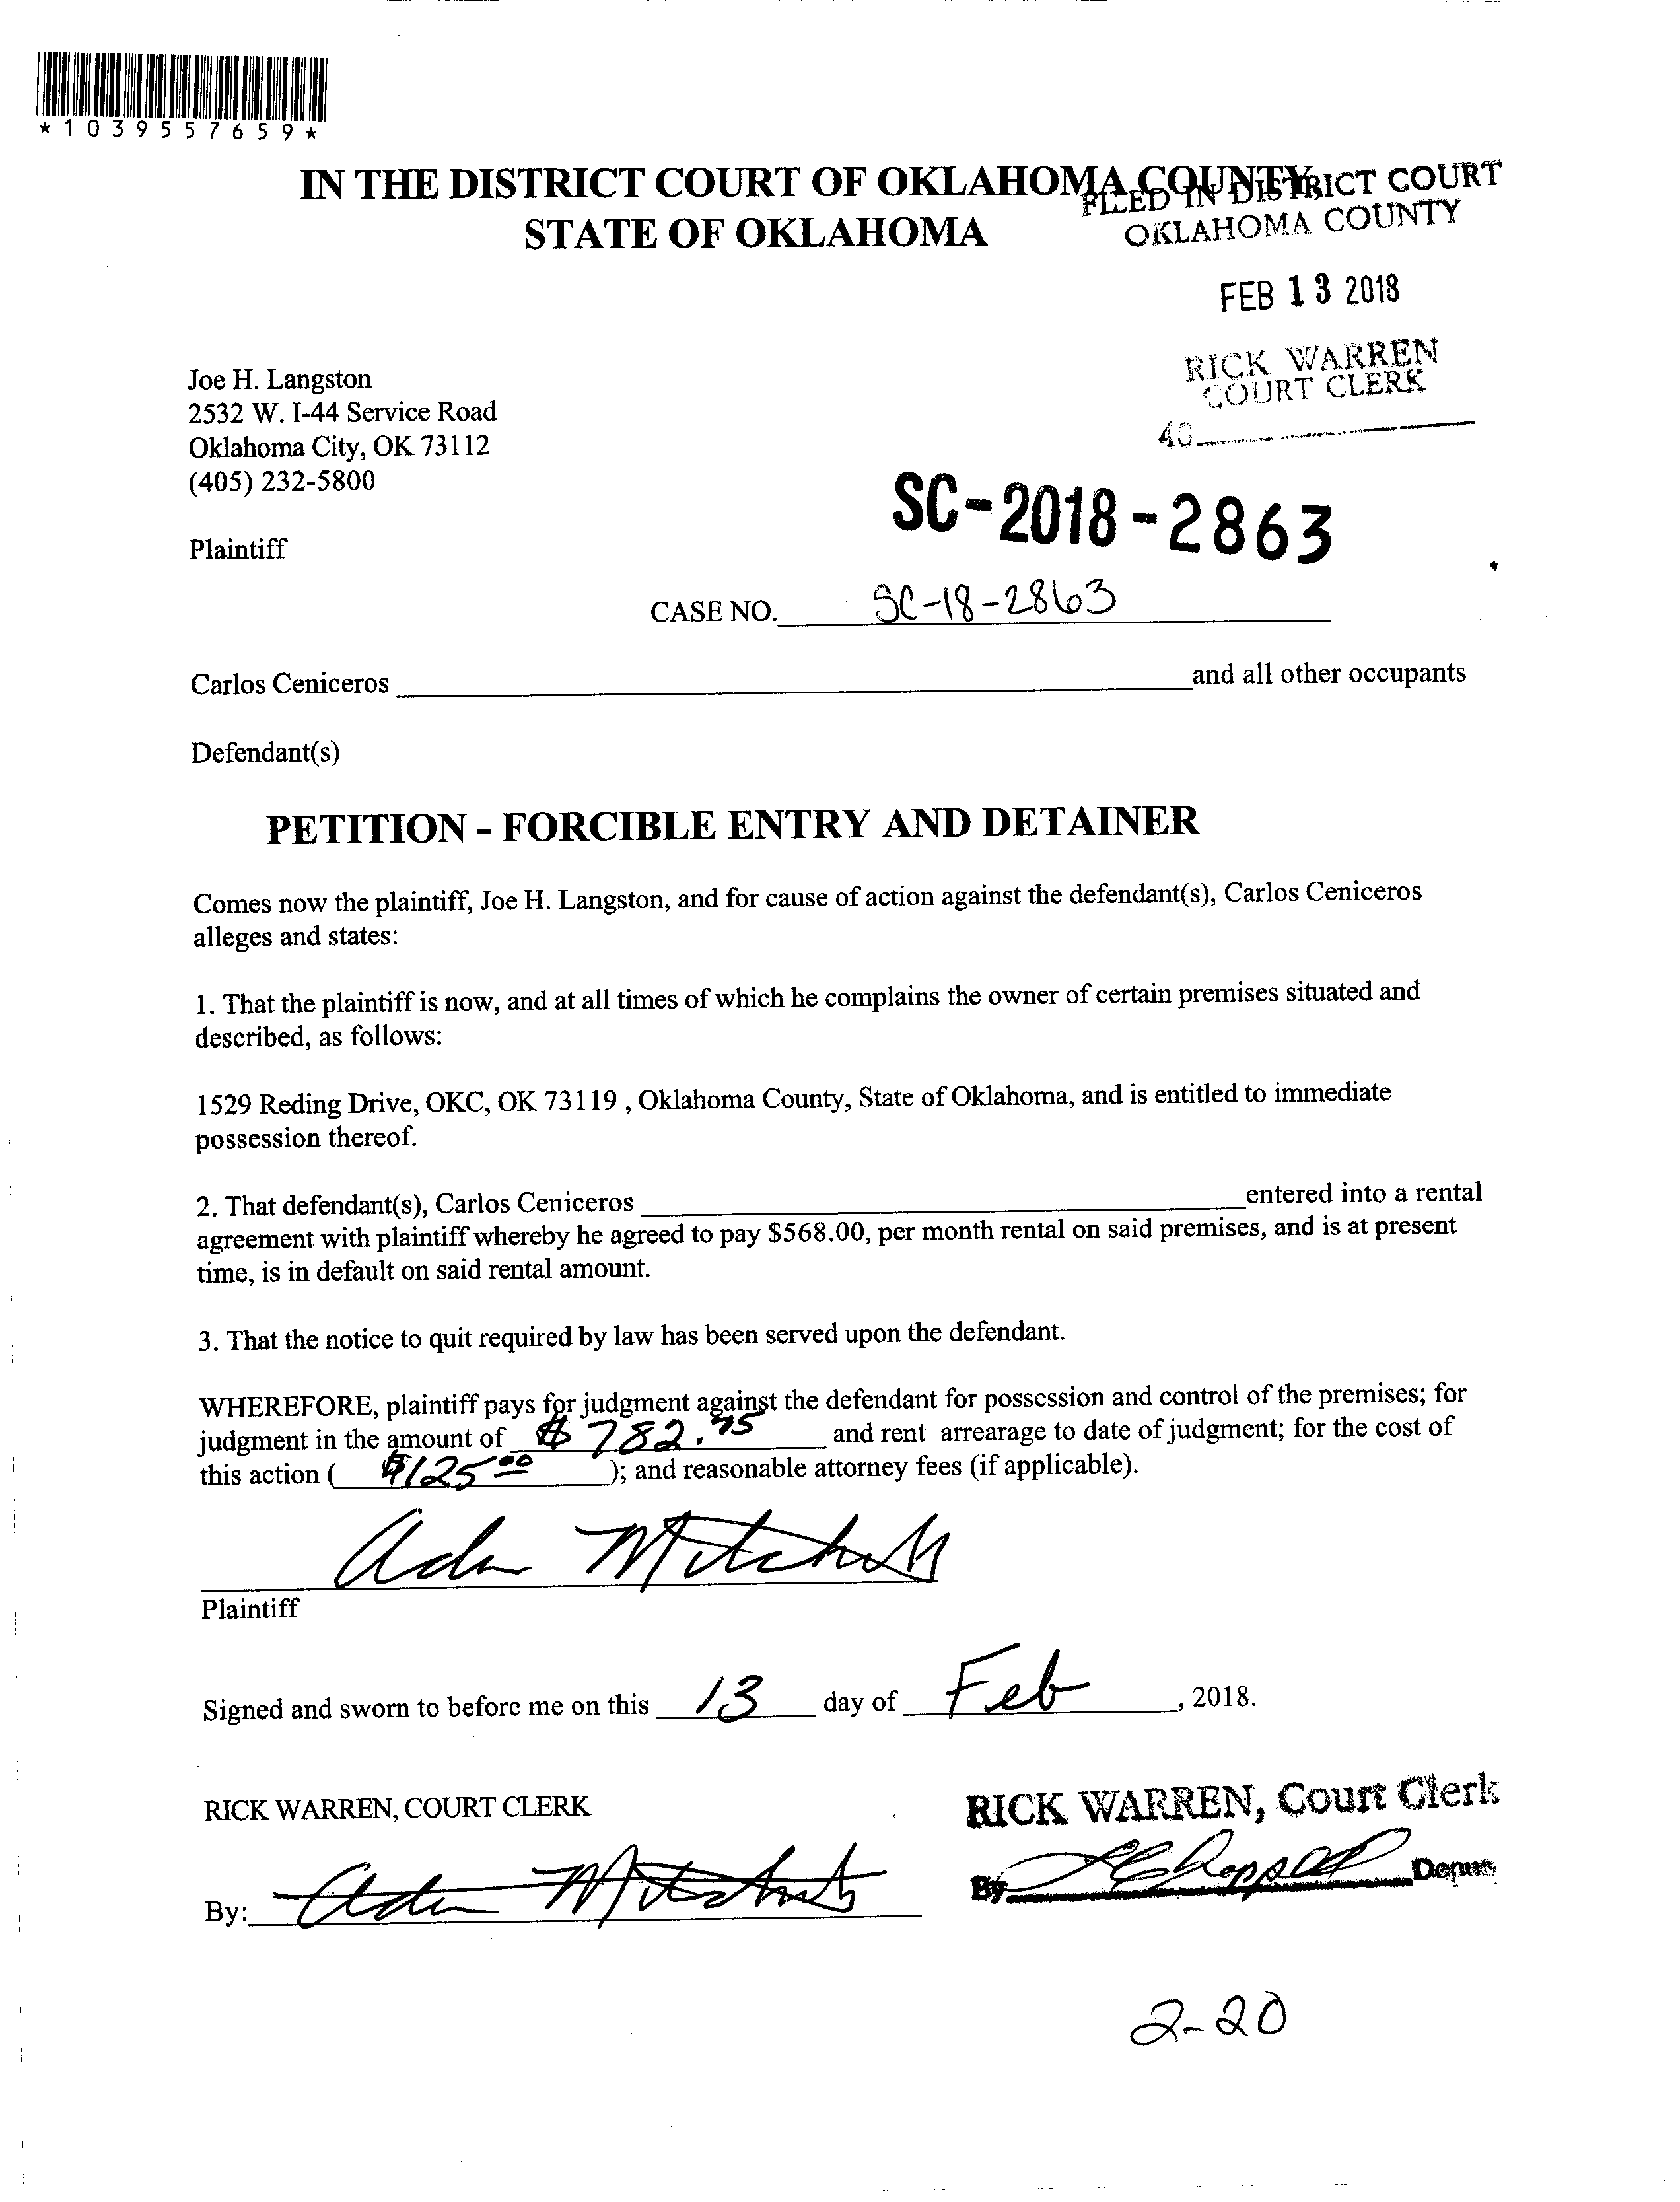 *1039557659*
IN THE DISTRICT COURT OF OKLAHOMA COUNTY
STATE OF OKLAHOMA
FILED IN DISTRICT COURT
OKLAHOMA COUNTY
FEB 13 2018
RICK WARREN
COURT CLERK
40
Joe H. Langston
2532 W. I-44 Service Road
Oklahoma City, OK 73112
(405) 232-5800
SC-2018-2863
Plaintiff
CASE NO. SC-18-2863
Carlos Ceniceros and all other occupants
Defendant(s)
PETITION - FORCIBLE ENTRY AND DETAINER
Comes now the plaintiff, Joe H. Langston, and for cause of action against the defendant(s), Carlos Ceniceros
alleges and states:
1. That the plaintiff is now, and at all times of which he complains the owner of certain premises situated and
described, as follows:
1529 Reding Drive, OKC, OK 73119 , Oklahoma County, State of Oklahoma, and is entitled to immediate
possession thereof.
2. That defendant(s), Carlos Ceniceros entered into a rental
agreement with plaintiff whereby he agreed to pay $568.00, per month rental on said premises, and is at present
time, is in default on said rental amount.
3. That the notice to quit required by law has been served upon the defendant.
WHEREFORE, plaintiff pays for judgment against the defendant for possession and control of the premises; for
judgment in the amount of $782.75 and rent arrearage to date of judgment; for the cost of
this action ( $125 00 ); and reasonable attorney fees (if applicable).
Mitchell
Plaintiff
Signed and sworn to before me on this 13 day of Feb , 2018.
RICK WARREN, COURT CLERK
RICK WARREN, Court Clerk
By Deputy
By:
2-20